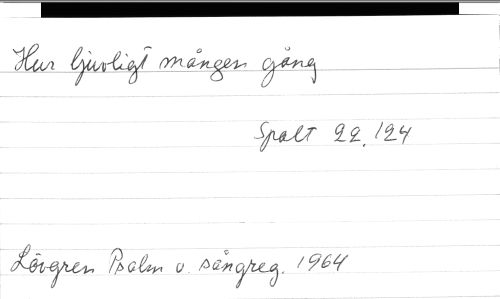 Hur ljuvligt mången gång
Spalt 22, 124
Lövgren Psalm o. sångreg. 1964